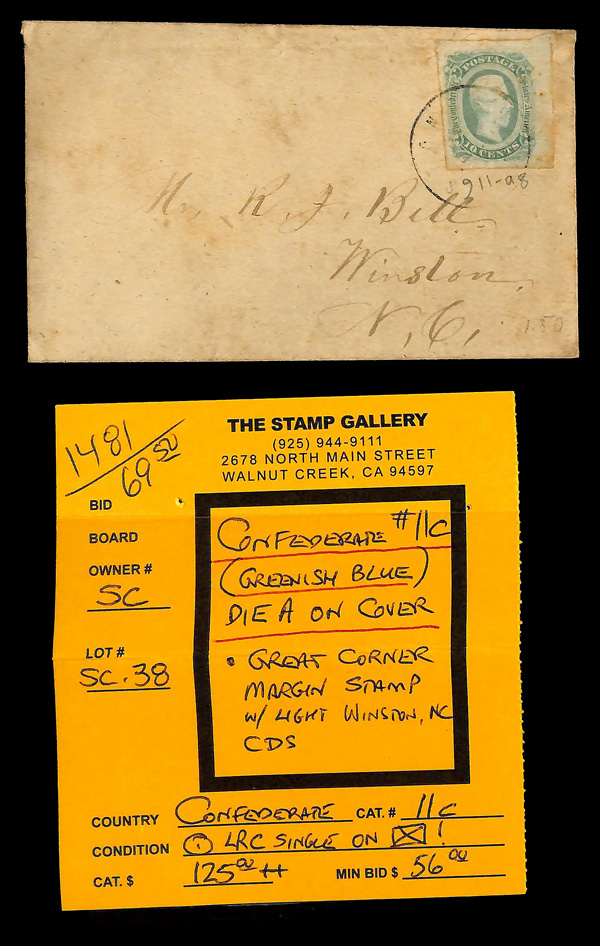 POSTAGE
10 CENTS
911-a8
Mr. R. J. Bell
Winston,
N. C.
1.50
1481
69 50
THE STAMP GALLERY
(925) 944-9111
2678 NORTH MAIN STREET
WALNUT CREEK, CA 94597
BID
BOARD
OWNER #
SC
LOT #
SC.38
CONFEDERATE #11c
(GREENISH BLUE)
DIE A ON COVER
• GREAT CORNER
MARGIN STAMP
W/ LIGHT WINSTON, NC
CDS
COUNTRY CONFEDERATE CAT. # 11c
CONDITION LRC SINGLE ON !
CAT. $ 125 00 MIN BID $ 56 00